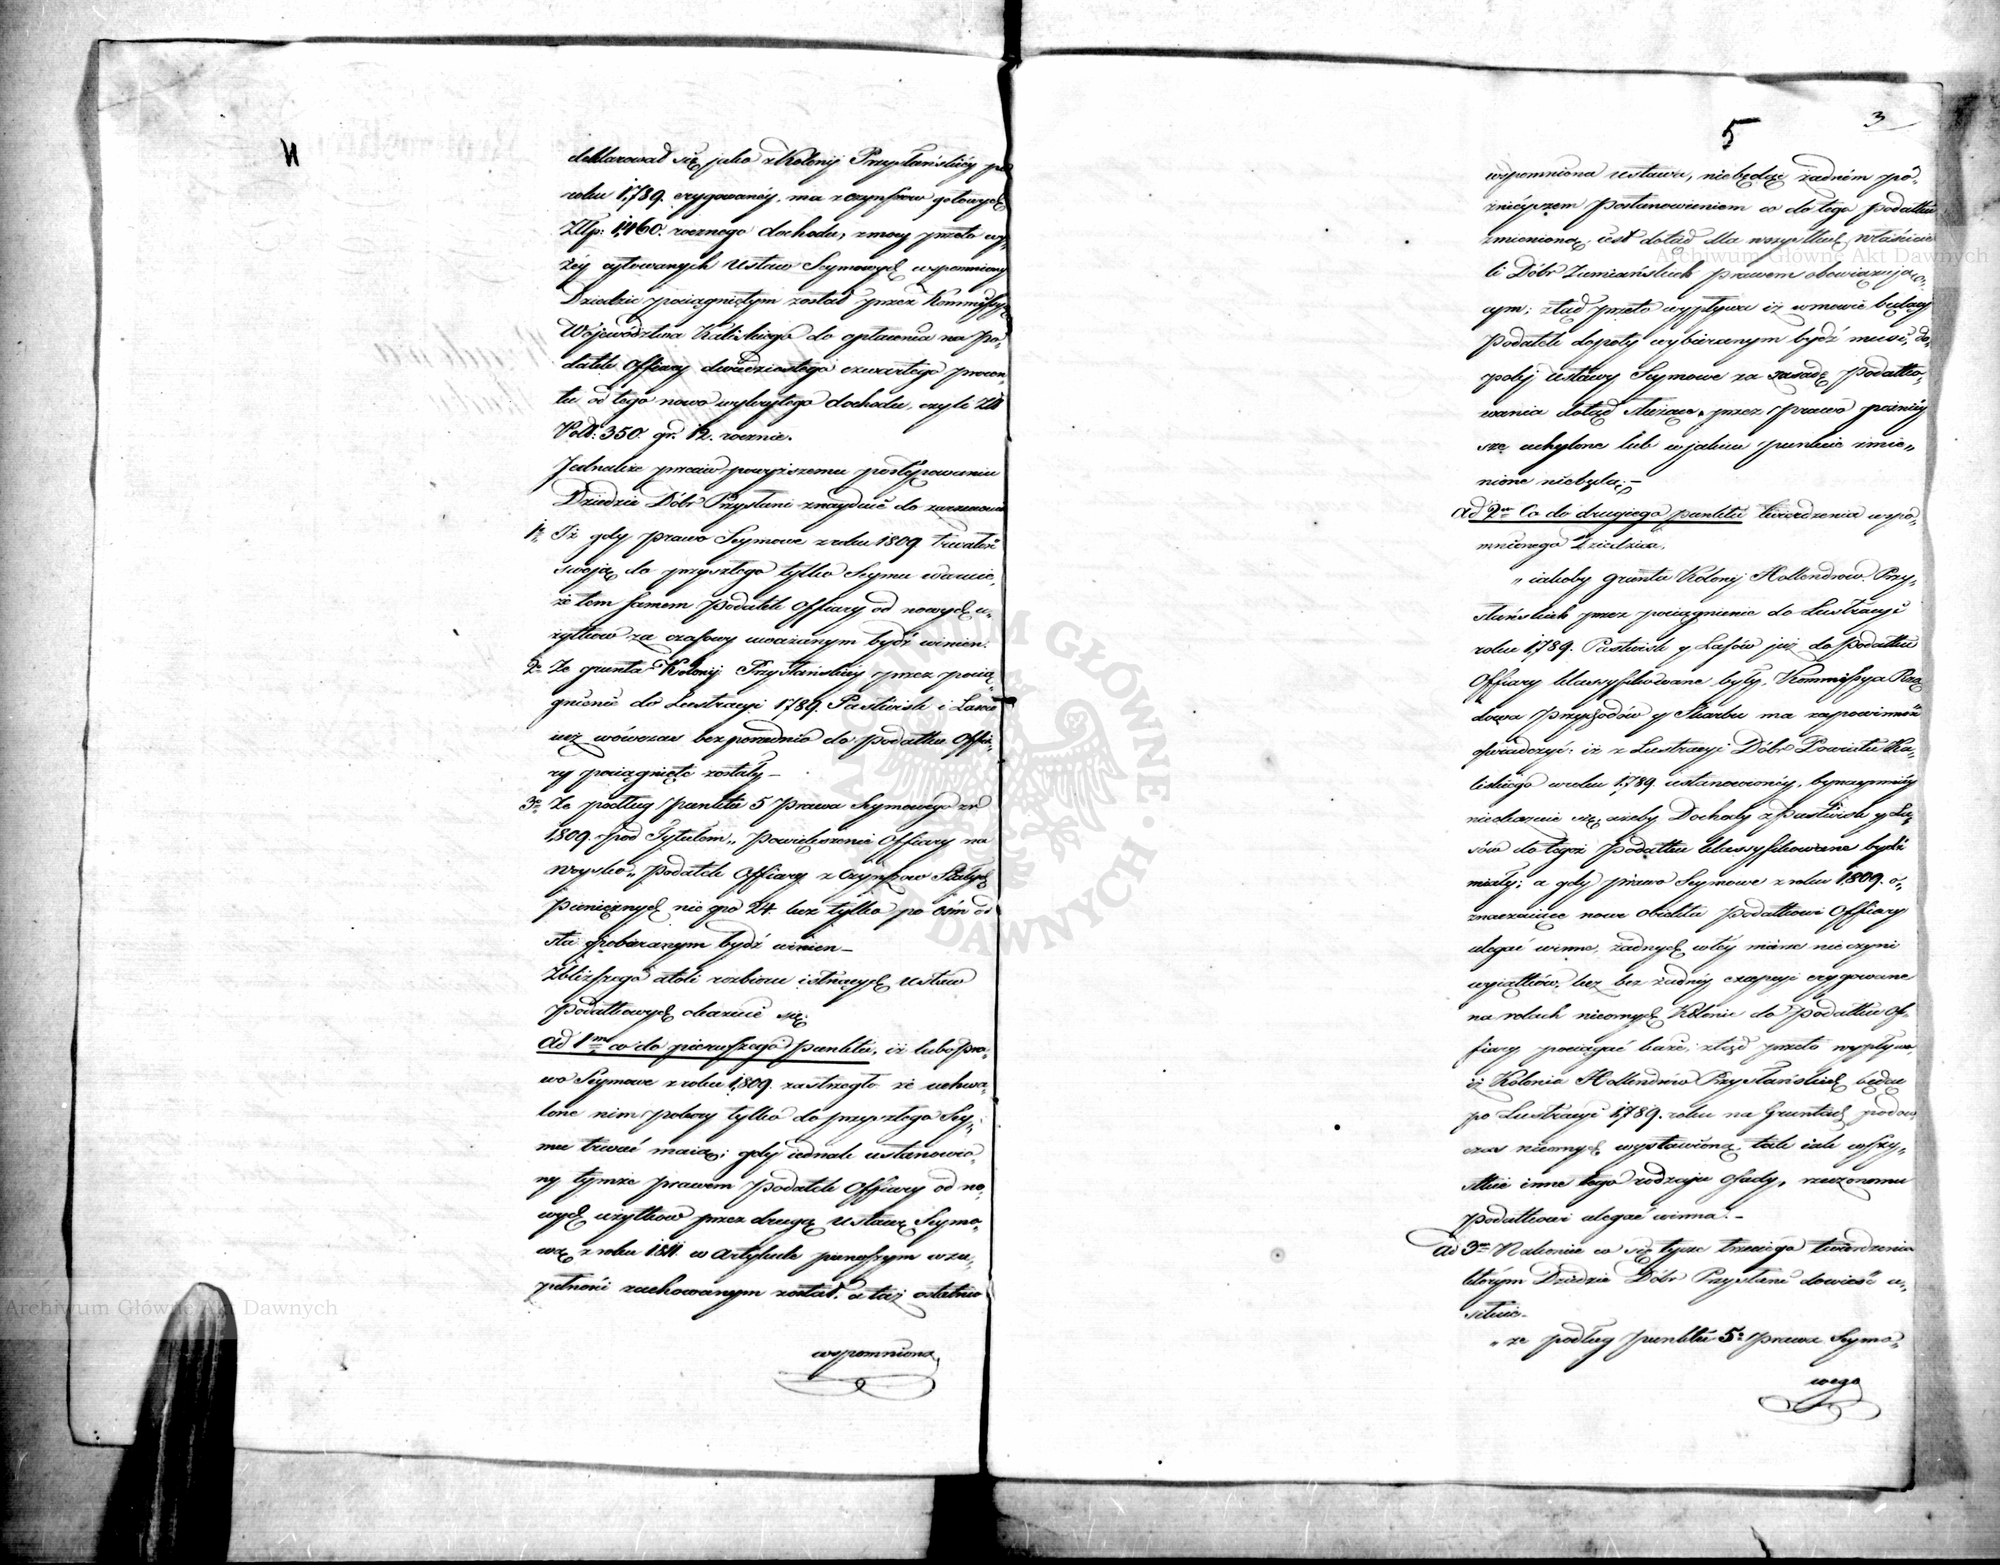 4
deklarował się jako z Kolonij Przystańskiey po
roku 1,789. erygowanéy, ma z czynszow gotowych
Złłp: 1,460. rocznego dochodu, z mocy przeto wy„
żéy cytowanych Ustaw Seymowych wspomniony
Dziedzic pociągniętym został przez Kommissyą
Województwa Kaliskiego do opłacenia na po„
datek Offiary dwudziestego czwartego procen„
tu od tego nowo wykrytego dochodu, czyli Zł
Pol: 350. gr. 12. rocznie.
Jednakże przeciw powyższemu postępowaniu
Dziedzic Dóbr Przystani znayduie do zarzucenia
1e Iż gdy prawo Seymowe z roku 1809. trwałość
swoją do przyszłego tylko Seymu
że tem samem Podatek Offiary od nowych u„
żytkow za czasowy uważanym bydź winien.
2e Że grunta Kolonij Przystańskiey przez pocią„
gnienie do Lustracyi 1789. Pastwisk i Lasów
iuż wówczas bezpośrednio do podatku Offia„
ry pociągnięte zostały —
3e Że podług punktu 5 Prawa Seymowego z r.
1809. pod Tytułem „ Powiększenie Offiary na
Woysko„ Podatek Offiary z Czynszow Stałych
pieniężnych nie po 24. lecz tylko po ośm od
sta pobieranym bydź winien —
Zbliższego atoli rozbioru istnących Ustaw
Podatkowych okazuie się;
Ad 1m co do pierwszego punktu, iż lubo Pra„
wo Seymowe z roku 1,809. zastrzegło że uchwa„
lone nim pobory tylko do przyszłego Sey„
mu trwać maią; gdy iednak ustanowio„
ny tymże prawem podatek Offiary od no„
wych użytkow przez drugą Ustawę Seymo„
wę z roku 1811. w Artykule pierwszym w zu„
pełności zachowanym został, a taż ostatnio
wspomniona
5
3
wspomniona ustawa, niebędąc żadném pó„
źnieyszem Postanowieniem co do tego podatku
zmienioną, iest dotąd dla wszystkich właścicie„
li Dóbr Ziemiańskich prawem obowiązuią„
cym; ztąd przeto wypływa iż w mowie będący
Podatek dopóty wybieranym bydź musi, do„
póki Ustawy Seymowe za zasadę podatko„
wania dotąd służące, przez prawo późniey
sze uchylone lub w jakim punkcie zmie„
nione niebędą;—
Ad 2m Co do drugiego punktu twierdzenia wspo„
mnionego Dziedzica,
„ iakoby grunta Kolonij Hollendrow Przy„
stańskich przez pociągnienie do Lustracyi
roku 1,789. Pastwisk y Lasów już do Podatku
Offiary klassyfikowane były, Kommissya Rzą
dowa Przychodów y Skarbu ma za powinność
oświadczyć: iż z Lustracyi Dóbr Powiatu Ka„
liskiego w roku 1,789. ustanowionéy, bynaymniéy
nieokazuie się, ażeby Dochody z Pastwisk y La„
sów do tegoż Podatku klassyfikowane bydź
miały; a gdy prawo Seymowe z roku 1,809. o„
znaczaiące nowe obiekta Podatkowi Offiary
ulegać winne, żadnych w téy mierze nie czyni
wyiątków, lecz bez żadnéy excepcyi erygowane
na rolach nieornych Kolonie do Podatku Of„
fiary pociągać każe, ztąd przeto wypływa,
iż Kolonia Hollendrów Przystańskich będąc
po Lustracyi 1,789. roku na Gruntach podów
czas nieornych wystawioną, tak iak wszy„
stkie inne tego rodzaju osady, rzeczonemu
Podatkowi ulegać winna.—
Ad 3m Nakoniec co się tycze trzeciego twierdzenia
którym Dziedzic Dóbr Przystani dowieść u„
siłuie.
„ że podług punktu 5: prawa Seymo„
wego
Archiwum Główne Akt Dawnych
Archiwum Główne Akt Dawnych
ARCHIWUM GŁÓWNE AKT DAWNYCH